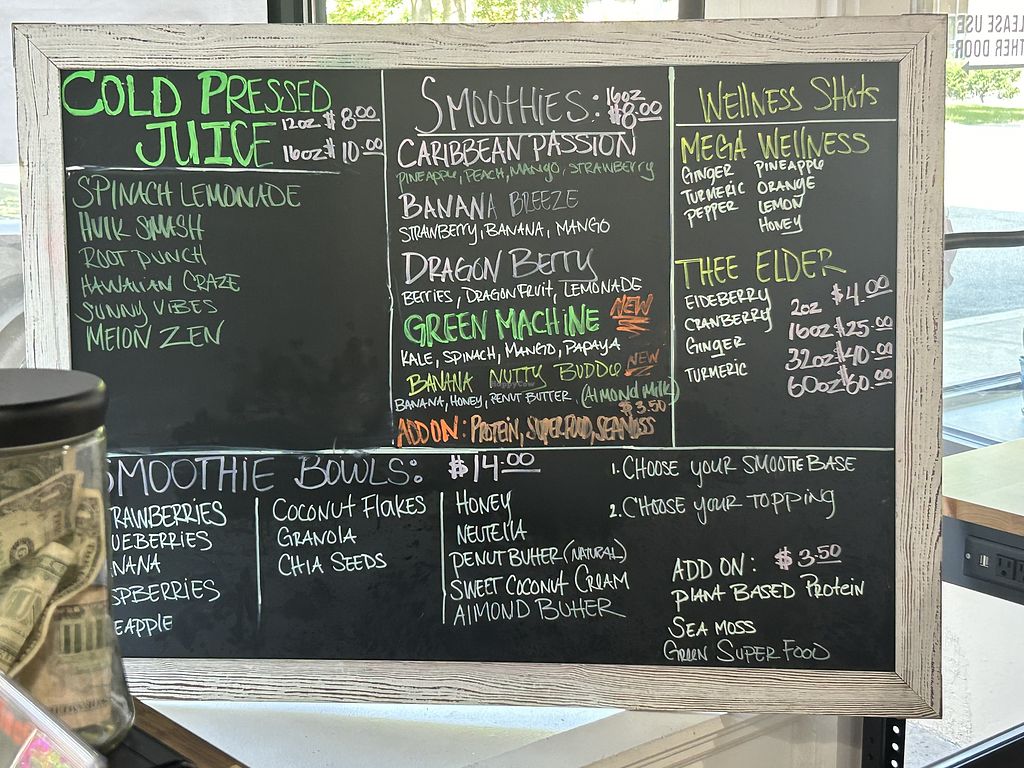 COLD PRESSED
JUICE
12oz $8.00
16oz $10.00
SPINACH LEMONADE
HULK SMASH
ROOT PUNCH
HAWAIIAN CRAZE
SUNNY VIBES
MELON ZEN
SMOOTHIES: 16oz $8.00
CARIBBEAN PASSION
PINEAPPLE, PEACH, MANGO, STRAWBERRY
BANANA BREEZE
STRAWBERRY, BANANA, MANGO
DRAGON BERRY
BERRIES, DRAGONFRUIT, LEMONADE
GREEN MACHINE NEW
KALE, SPINACH, MANGO, PAPAYA
BANANA NUTTY BUDDY NEW
BANANA, HONEY, PENUT BUTTER, (Almond Milk)
$3.50
ADD ON: PROTEIN, SUPERFOOD, SEAMOSS
WELLNESS SHOTS
MEGA WELLNESS
GINGER PINEAPPLE
TURMERIC ORANGE
PEPPER LEMON
HONEY
THEE ELDER
ELDEBERRY
CRANBERRY 2oz $4.00
GINGER 16oz $25.00
TURMERIC 32oz $40.00
60oz $60.00
SMOOTHIE BOWLS: $14.00
RAWBERRIES
UEBERRIES
NANA
SPBERRIES
EAPPLE
COCONUT FLAKES
GRANOLA
CHIA SEEDS
HONEY
NUTELLA
PENUT BUTTER (NATURAL)
SWEET COCONUT CREAM
ALMOND BUTTER
1. CHOOSE YOUR SMOOTIE BASE
2. CHOOSE YOUR TOPPING
ADD ON: $3.50
PLANT BASED PROTEIN
SEA MOSS
GREEN SUPER FOOD
LEASE USE
THER DOOR
HappyCow